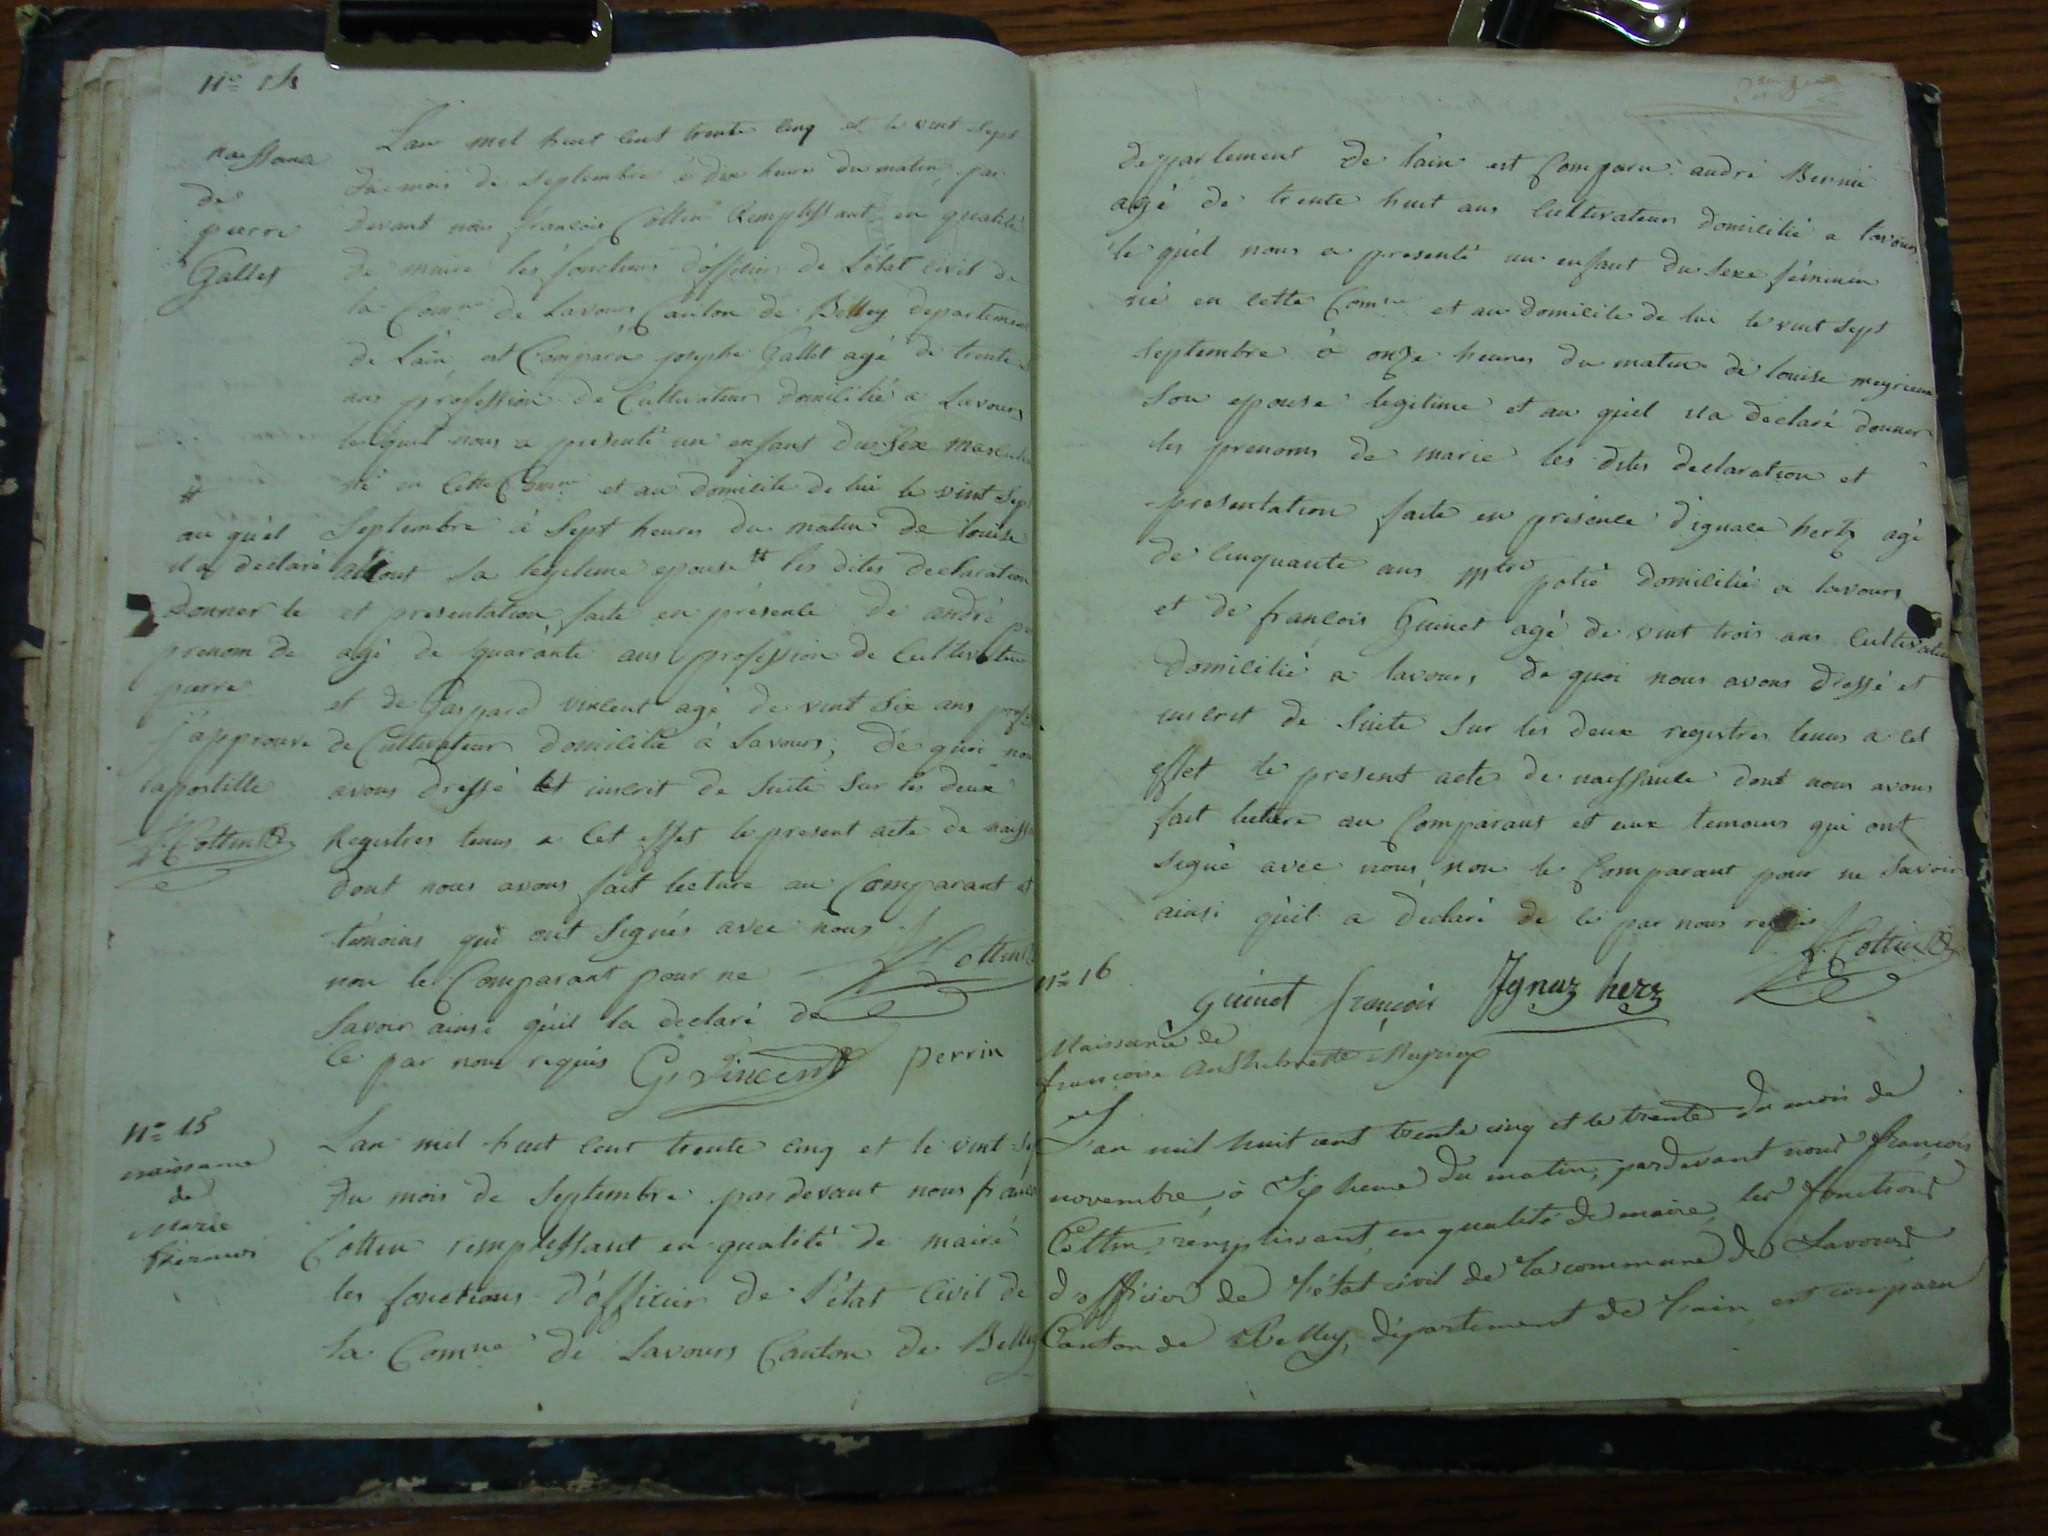 N° 14
naissance
de
pierre
Gallet
L'an mil huit cent trente cinq et le vint sept
du mois de septembre à dix heures du matin par
devant nous françois Cottin Remplissant en qualité
de maire les fonctions d'officier de L'état Civil de
la Comne de Lavours Canton de Belley departement
de L'ain est Comparu josephe Gallet agé de trente
ans profession de Cultivateur domicilié a Lavours
le quel nous a presenté un enfant du sexe masculin
né en cette Comne et au domicile de lui le vint sept
Septembre à Sept heures du matin de louise
sa legitime epouse # les dites declaration
et presentation faite en présence de andré
agé de quarante ans profession de Cultivateur
et de Gaspard vincent agé de vint six ans
de Cultivateur domicilié à Lavours, de quoi nous
avons dressé et inscrit de suite sur les deux
Registres tenus a Cet effet le present acte de
dont nous avons fait lecture au Comparant et
témoins qui ont signés avec nous
non le Comparant pour ne
savoir ainsi qu'il la declaré de
ce par nous requis
F. Cottin
G. Vincent perrin
#
au quel
il a declaré
donner le
prenom de
pierre
j'approuve
lapostille
F. Cottin
N° 15
naissance
de
Marie
L'an mil huit cent trente cinq et le vint sept
du mois de Septembre par devant nous
Cottin remplissant en qualité de maire
les fonctions d'officier de l'état Civil de
la Comne de Lavours Canton de Belley
departement de l'ain est Comparu andré
agé de trente huit ans Cultivateur domicilié a lavours
le quel nous a presenté un enfant du sexe féminin
né en cette Comne et au domicile de lui le vint sept
septembre à onze heures du matin de louise meyrieux
son epouse legitime et au quel il a declaré donner
les prenoms de marie les dites declaration et
presentation faite en présence d'ignace hertz agé
de cinquante ans domicilié a lavours
et de françois Guinet agé de vint trois ans Cultivateur
domicilié a lavours, de quoi nous avons dressé et
inscrit de suite sur les deux registres tenus a cet
effet le present acte de naissance dont nous avons
fait lecture au Comparant et aux temoins qui ont
signé avec nous non le Comparant pour ne savoir
ainsi qu'il a declaré de ce par nous requis
F. Cottin
guinet françois Ignaz herz
N° 16
Naissance de
françoise
L'an mil huit cent trente cinq et le trente du mois de
novembre, à heure du matin, pardevant nous françois
Cottin remplissant en qualité de maire les fonctions
d'officier de l'état civil de la commune de Lavours
Canton de Belley, département de l'ain est comparu